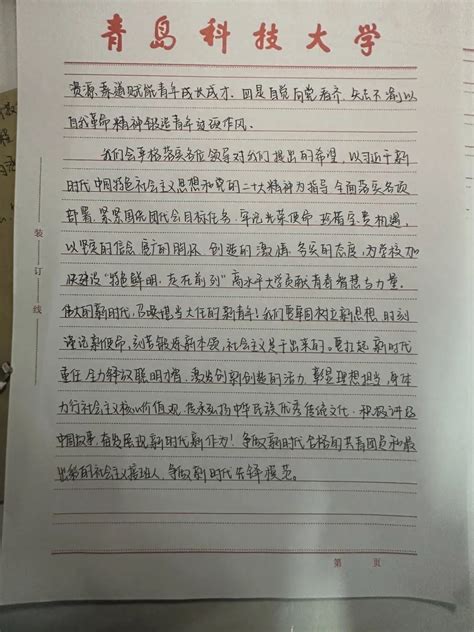 青岛科技大学
资源、渠道赋能青年成长成才。四是自觉向党看齐、矢志不渝以
自我革命精神锻造青年过硬作风。
我们会严格落实各位领导对我们提出的希望，以习近平新
时代中国特色社会主义思想和党的二十大精神为指导，全面落实各项
部署，紧紧围绕团代会目标任务，牢记光荣使命，珍惜宝贵机遇，
以坚实的信念、宽广的胸怀、创造的激情、务实的态度，为学校加
快建设“特色鲜明、走在前列”高水平大学贡献青春智慧与力量。
伟大的新时代，召唤堪当大任的新青年！我们要牢固树立新思想，时刻
谨记新使命，刻苦锻造新本领，社会主义是干出来的。要扛起新时代
重任，全力释放聪明才智，激发创新创造的活力，彰显理想担当，身体
力行社会主义核心价值观，传承弘扬中华民族优秀传统文化，积极讲好
中国故事，奋发展现新时代新作为！争做新时代合格的共青团员和最
出彩的社会主义接班人，争做新时代先锋模范。
装
订
线
第 页